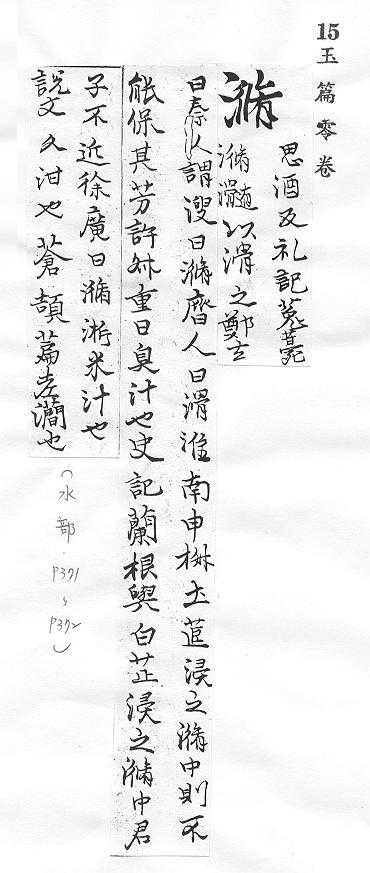 15玉篇零卷
滫
思酒反礼記荁薧
滫瀡以滑之鄭玄
曰秦人謂溲曰滫齊人曰滑淮南申椒土茞浸之滫中則不
能保其芳許叔重曰臭汁也史記蘭根與白芷浸之滫中君
子不近徐廣曰滫淅米汁也
說文久泔也蒼頡篇
也
(水部.P371、P372)